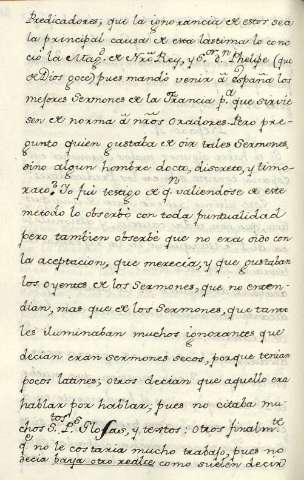 Predicadores; que la ignorancia de estos sea
la principal causa de esta lastima lo cono
ció la Mag.d de Nrõ. Rey, y S.or d.n Phelipe (que
de Dios goce) pues mandó venir â españa los
mejores Sermones de la Francia p.a que sirvie
sen de norma â nrõs oradores. Pero pre
gunto quien gustaba de oir tales Sermones,
sino algun hombre docto, discreto, y timo-
rato? Yo fui testigo de q.n valiendose de este
metodo lo observó con toda puntualidad
pero tambien observé que no era oido con
la aceptacion, que merecia, y que gustaban
los oyentes de los Sermones, que no enten-
dian, mas que de los Sermones, que tanto
les iluminaban muchos ignorantes que
decian eran sermones secos, porque tenian
pocos latines; otros decian que aquello era
hablar por hablar, pues no citaba mu-
chos S.tos P.es Glosas, y textos: otros finalm.te
q.e no le costaria mucho trabajo, pues no
decia baya otro realce como suelen decir